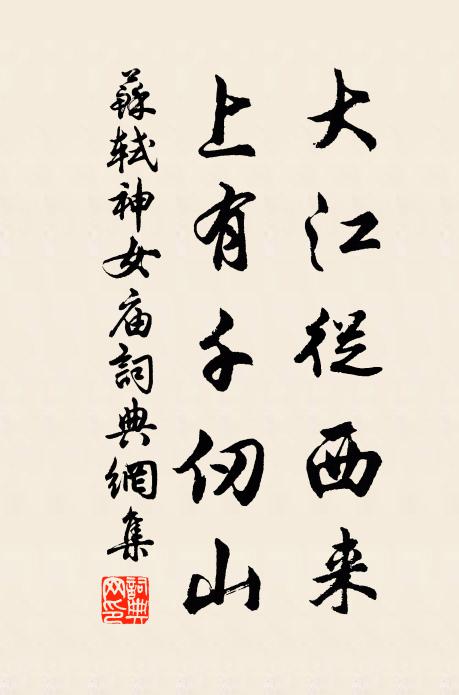 大江從西来
上有千仞山
蘇軾神女庙詞典網集
詞典網印